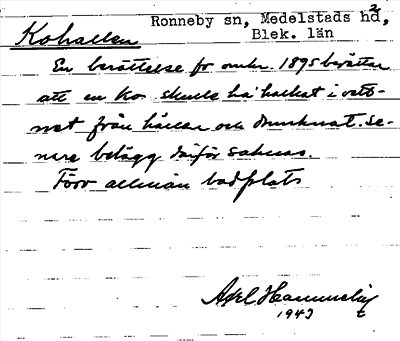 Ronneby sn, Medelstads hd,
Blek. län
Kohallen
En berättelse fr omkr. 1895 berättar
att en ko skulle ha halkat i vatt-
net från hällen och drunknat. Se-
nare belägg därför saknas.
Förr allmän badplats
Axel
1943